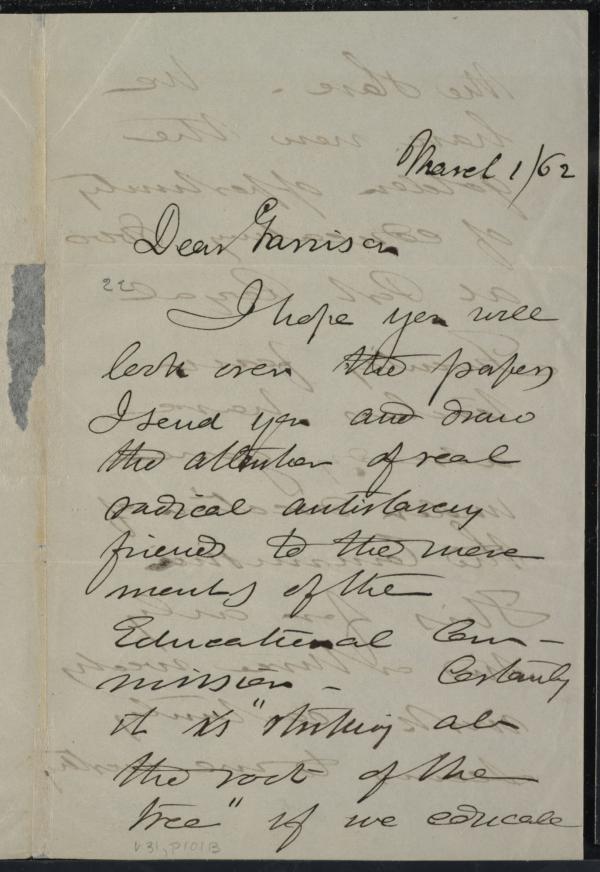 March 1/62
Dear Garrison
22
I hope you will
look over the papers
I send you and draw
the attention of real
radical antislavery
friends to the move
ments of the
Educational Com-
mission - Certainly
it is "striking at
the root of the
tree" if we educate
v.31, p.101B